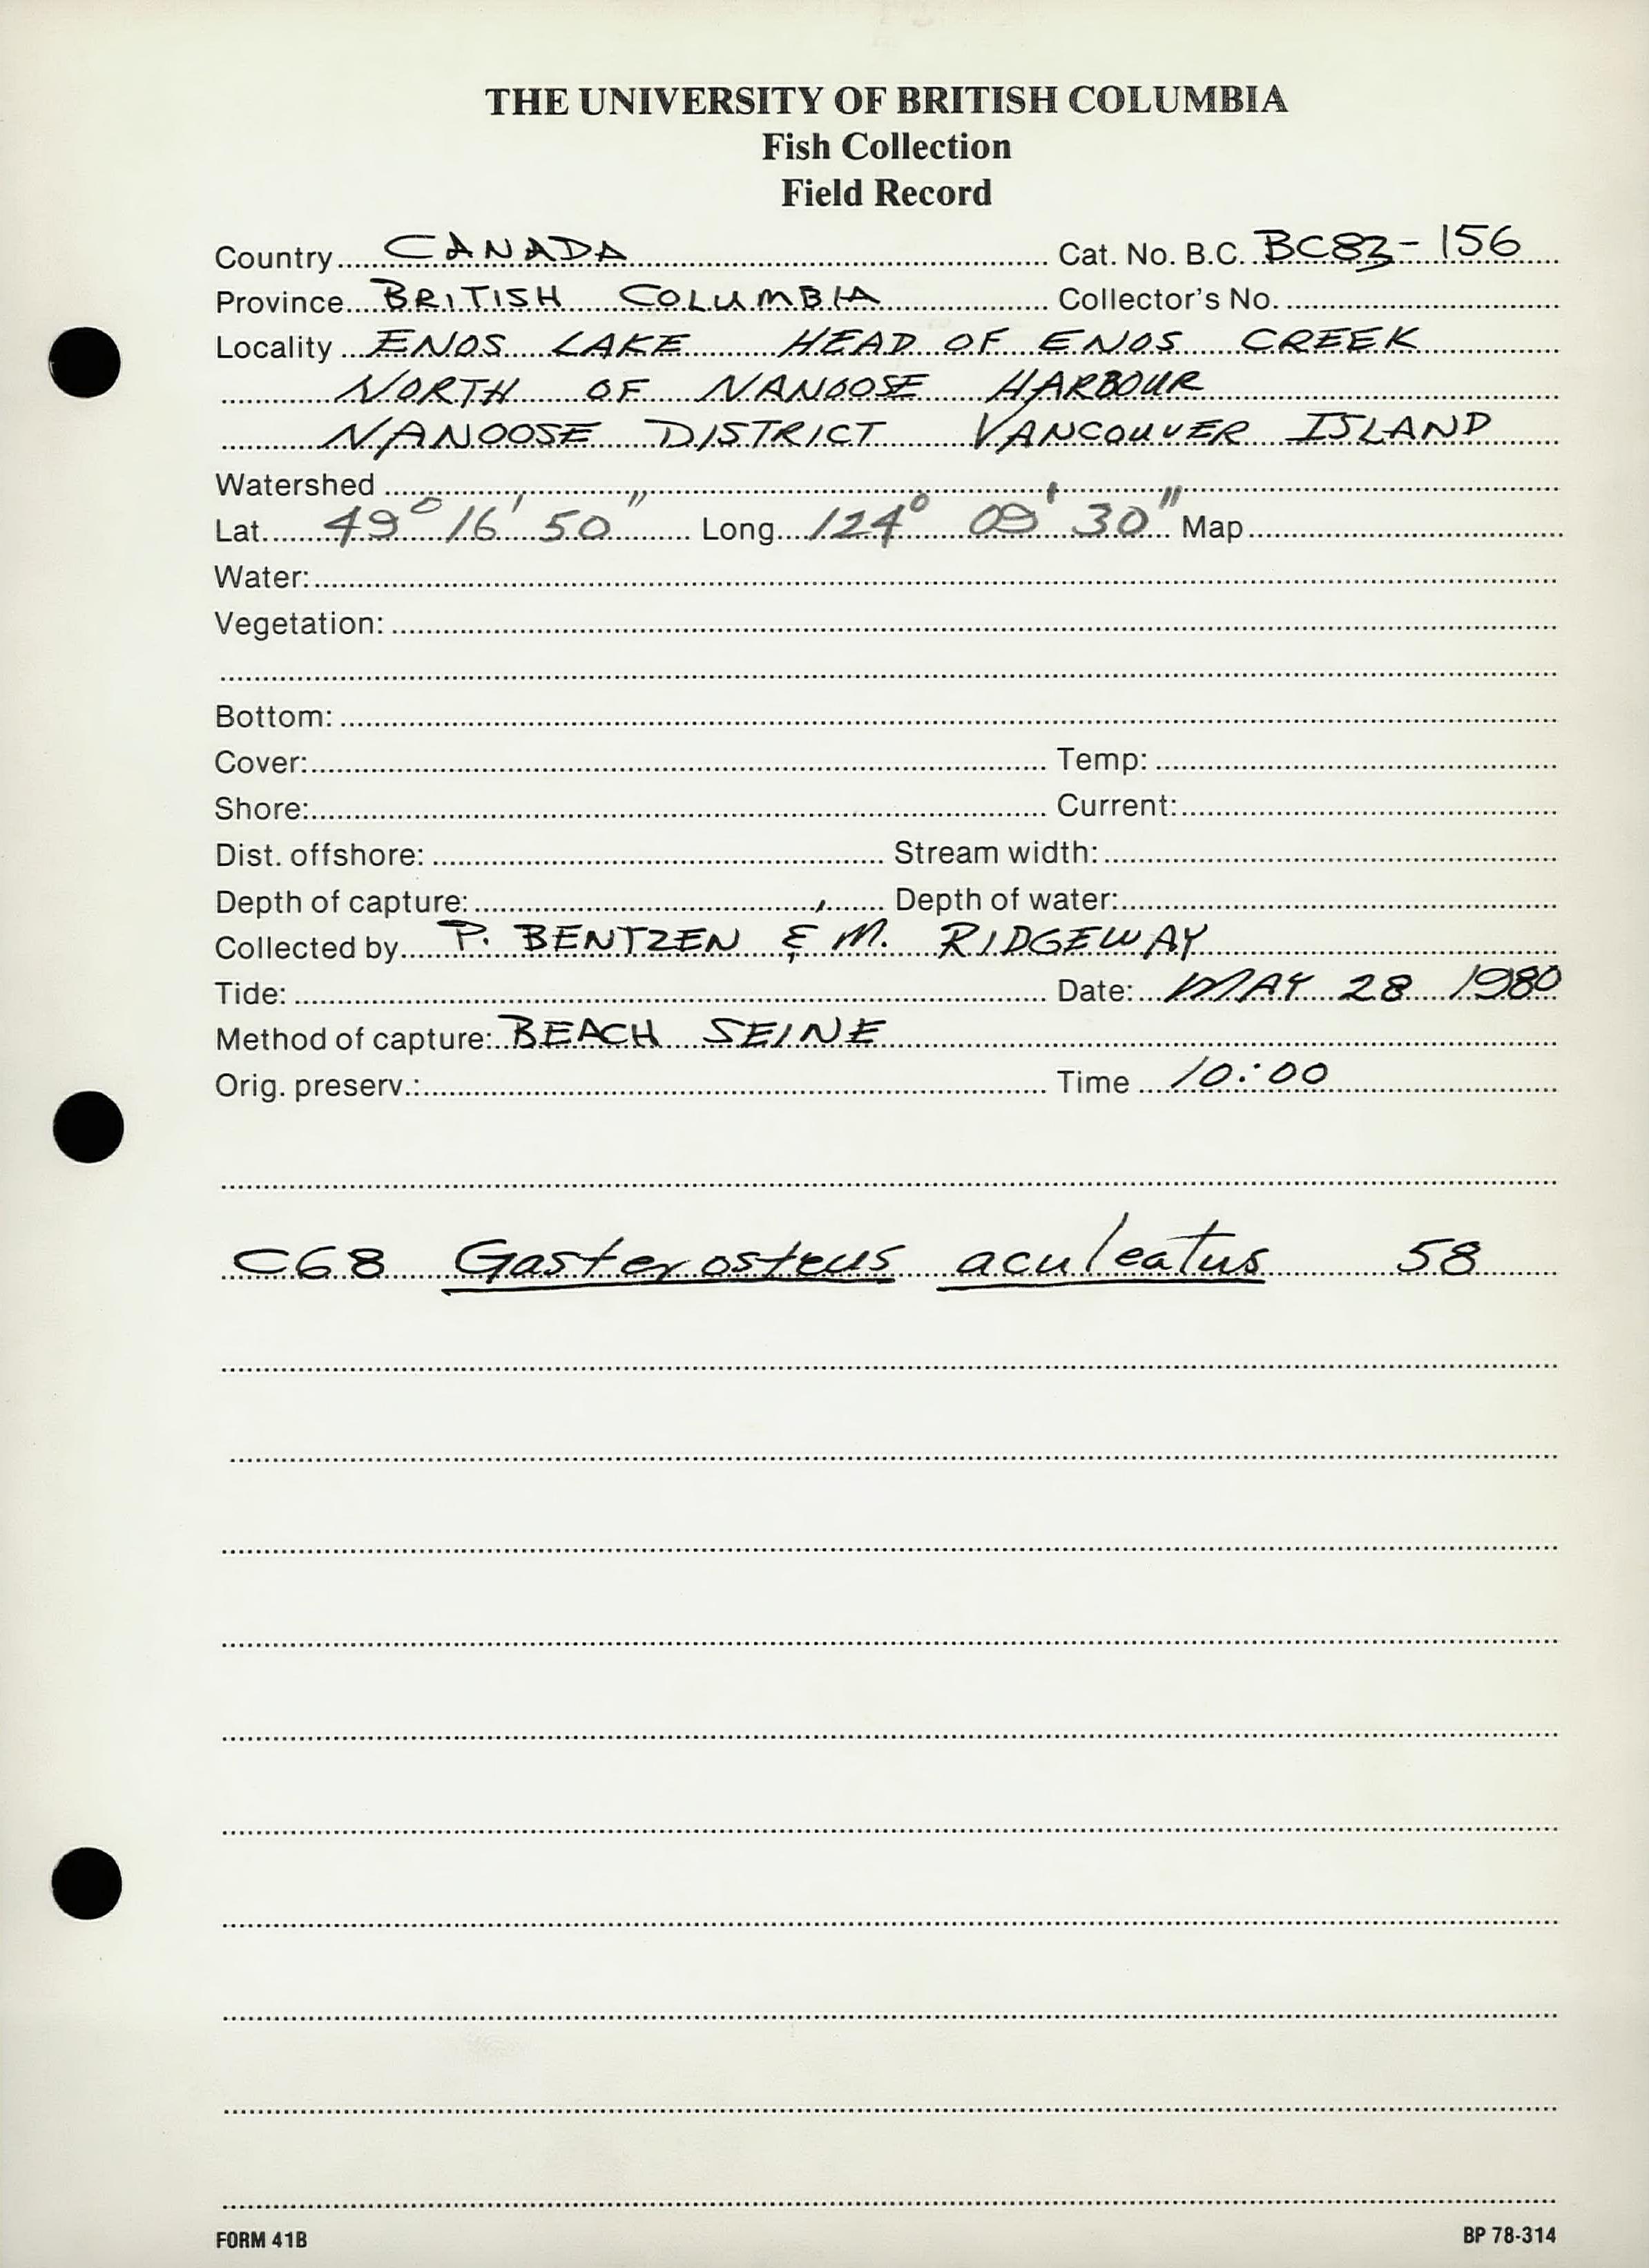 THE UNIVERSITY OF BRITISH COLUMBIA
Fish Collection
Field Record
Country CANADA Cat. No. B.C. BC83-156
Province BRITISH COLUMBIA Collector's No.
Locality ENOS LAKE HEAD OF ENOS CREEK
NORTH OF NANOOSE HARBOUR
NANOOSE DISTRICT VANCOUVER ISLAND
Watershed
Lat. 49° 16' 50" Long. 124° 09' 30" Map
Water:
Vegetation:
Bottom:
Cover: Temp:
Shore: Current:
Dist. offshore: Stream width:
Depth of capture: Depth of water:
Collected by P. BENTZEN & M. RIDGEWAY
Tide: Date: MAY 28 1980
Method of capture: BEACH SEINE
Orig. preserv.: Time 10:00
C68 Gasterosteus aculeatus 58
FORM 41B BP 78-314